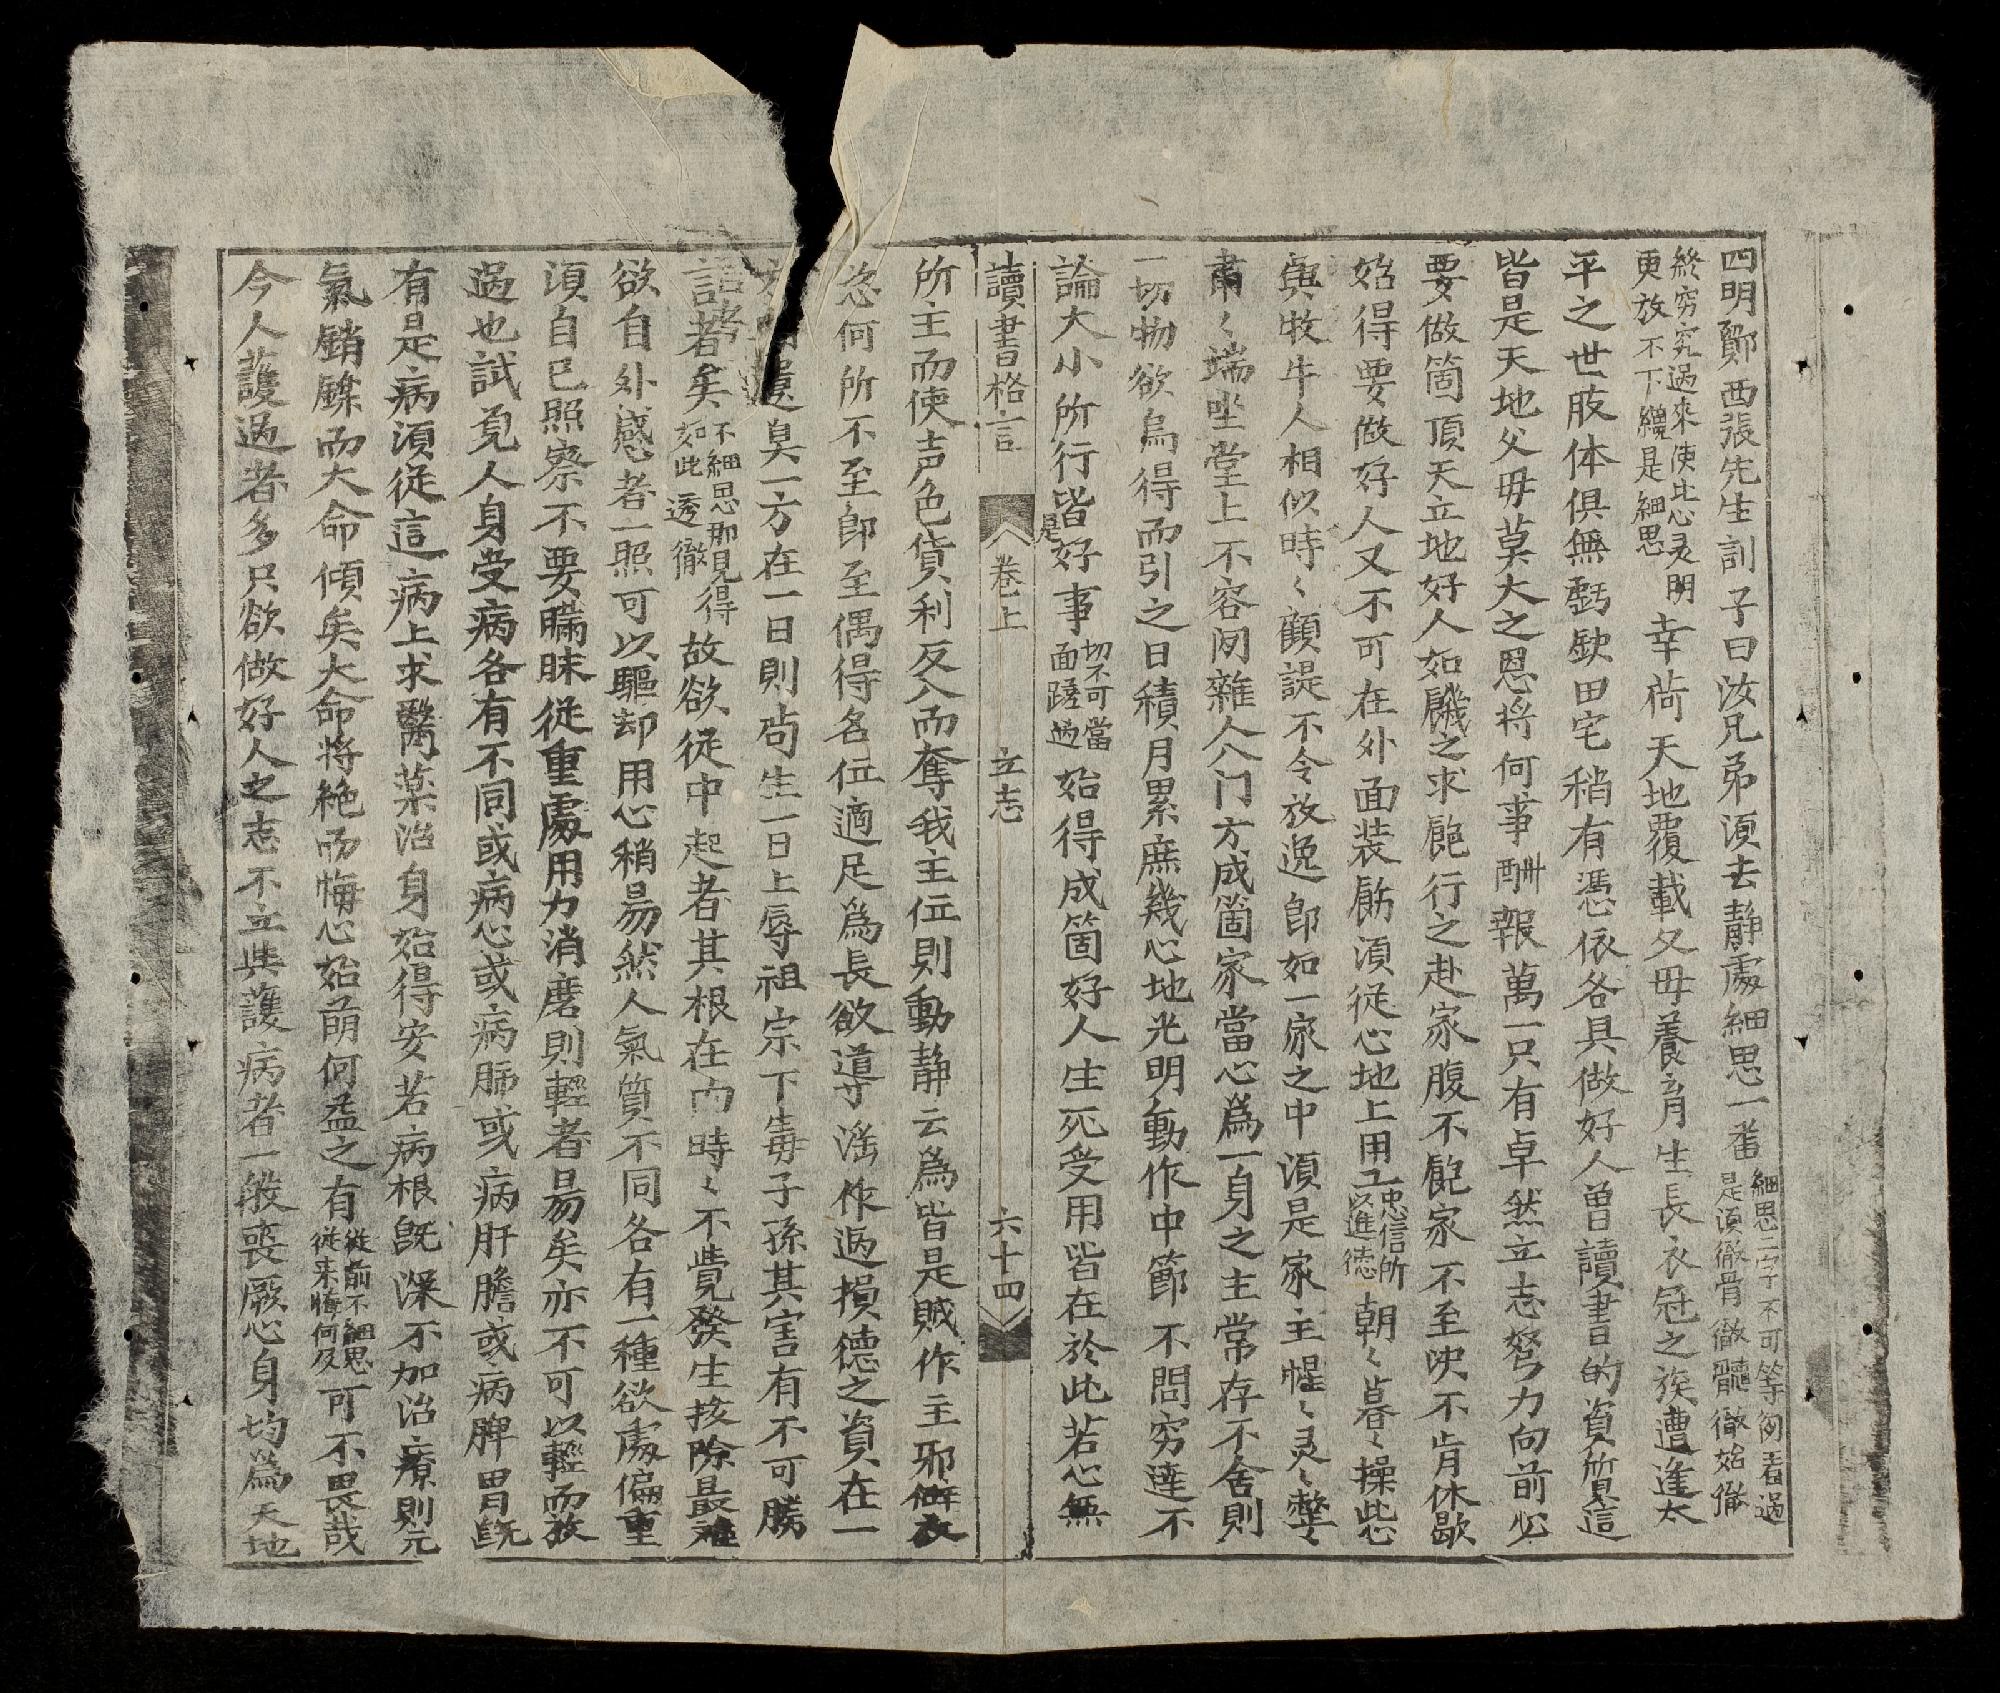 四明鄭西張先生訓子曰汝兄弟須去静處細思一番細思二字不可等匆看過是須徹骨徹髓徹始徹
終窮究過來使此心灵明更放不下纔是細思幸荷天地覆載父母養育生長衣冠之族遭逢太
平之世肢体俱無虧缺田宅稍有憑依各具做好人曾讀書的資質這
皆是天地父母莫大之恩將何事酬報萬一只有卓然立志努力向前必
要做箇頂天立地好人如饑之求飽行之赴家腹不飽家不至决不肯休歇
始得要做好人又不可在外面装餙須從心地上用工忠信所以進徳朝〻暮〻操此心
與牧牛人相似時〻顧諟不令放逸即如一家之中須是家主惺〻灵〻整
肅〻端坐堂上不容閑雜人入门方成箇家當心爲一身之主常存不舍則
一切物欲烏得而引之日積月累庶幾心地光明動作中節不問穷達不
論大小所行皆是好事切不可當面蹉過始得成箇好人生死受用皆在於此若心無
讀書格言 卷上 立志 六十四
所主而使声色貨利反入而奪我主位則動静云爲皆是賊作主邪僻
恣何所不至即至偶得名位適足爲長欲導滛作過損德之資在一
遺臭一方在一日則尚生一日上辱祖宗下毒子孫其害有不可勝
言者矣不細思那見得如此透徹故欲従中起者其根在內時〻不覺發生按除最難
欲自外感者一照可以驅却用心稍易然人氣質不同各有一種欲處偏重
湏自已照察不要瞞昧從重處用力消磨則輕者易矣亦不可以輕而放
過也試覓人身受病各有不同或病心或病肺或病肝膽或病脾胃既
有是病湏從這病上求醫薬治身始得安若病根既深不加治療則元
氣銷鑠而大命傾矣大命将絶而悔心始萌何益之有從前不細思従来悔何及可不畏哉
今人護過者多只欲做好人之志不立與護病者一般喪厥心身均為天地